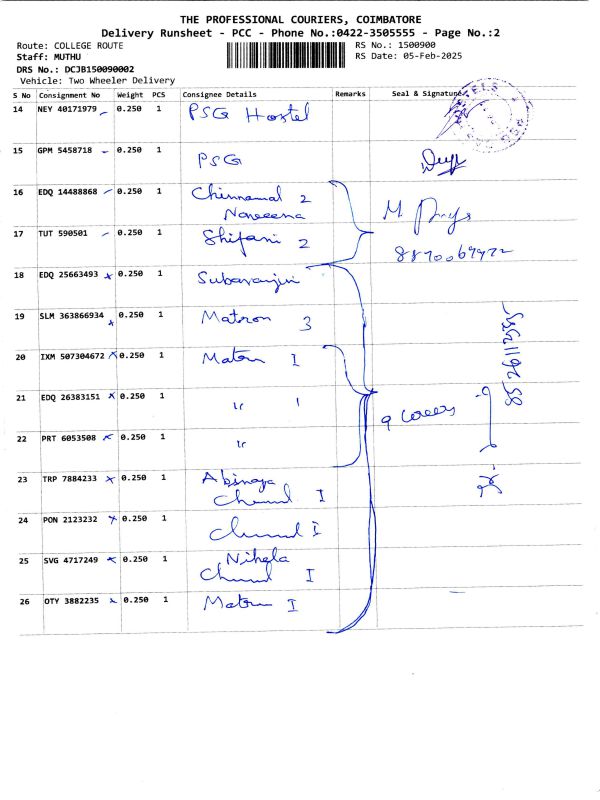 THE PROFESSIONAL COURIERS, COIMBATORE
Delivery Runsheet - PCC - Phone No.:0422-3505555 - Page No.:2
Route: COLLEGE ROUTE
Staff: MUTHU
DRS No.: DCJB150090002
Vehicle: Two Wheeler Delivery
RS No.: 1500900
RS Date: 05-Feb-2025
S No Consignment No Weight PCS Consignee Details Remarks Seal & Signature
14 NEY 40171979 0.250 1 PSG Hostel
15 GPM 5458718 0.250 1 PSG
16 EDQ 14488868 0.250 1 Chinnamal 2
Naveena
17 TUT 590501 0.250 1 Shifani 2
18 EDQ 25663493 0.250 1 Subaranjini
19 SLM 363866934 0.250 1 Matron 3
20 IXM 507304672 0.250 1 Matron I
21 EDQ 26383151 0.250 1 " I
22 PRT 6053508 0.250 1 "
23 TRP 7884233 0.250 1 Abinaya
I
24 PON 2123232 0.250 1 I
25 SVG 4717249 0.250 1 Nihala
I
26 OTY 3882235 0.250 1 Matron I
9 covers